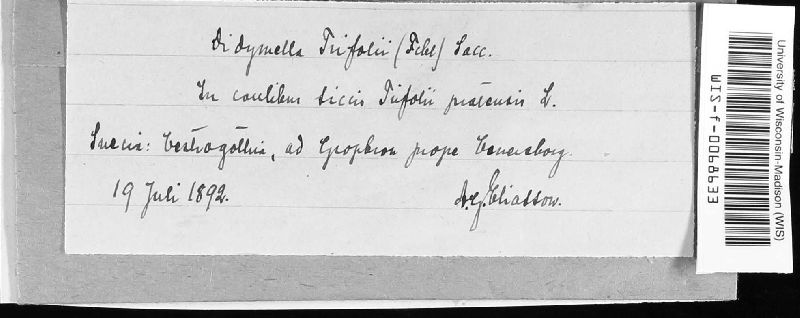 Didymella Trifolii (Fckl) Sacc.
In caulibus siccis Trifolii pratensis L.
Suecia: Vestrogothia, ad Gropbron prope Venersborg.
19 Juli 1892.
A.G. Eliasson.
University of Wisconsin-Madison (WIS)
WIS-f-0068633